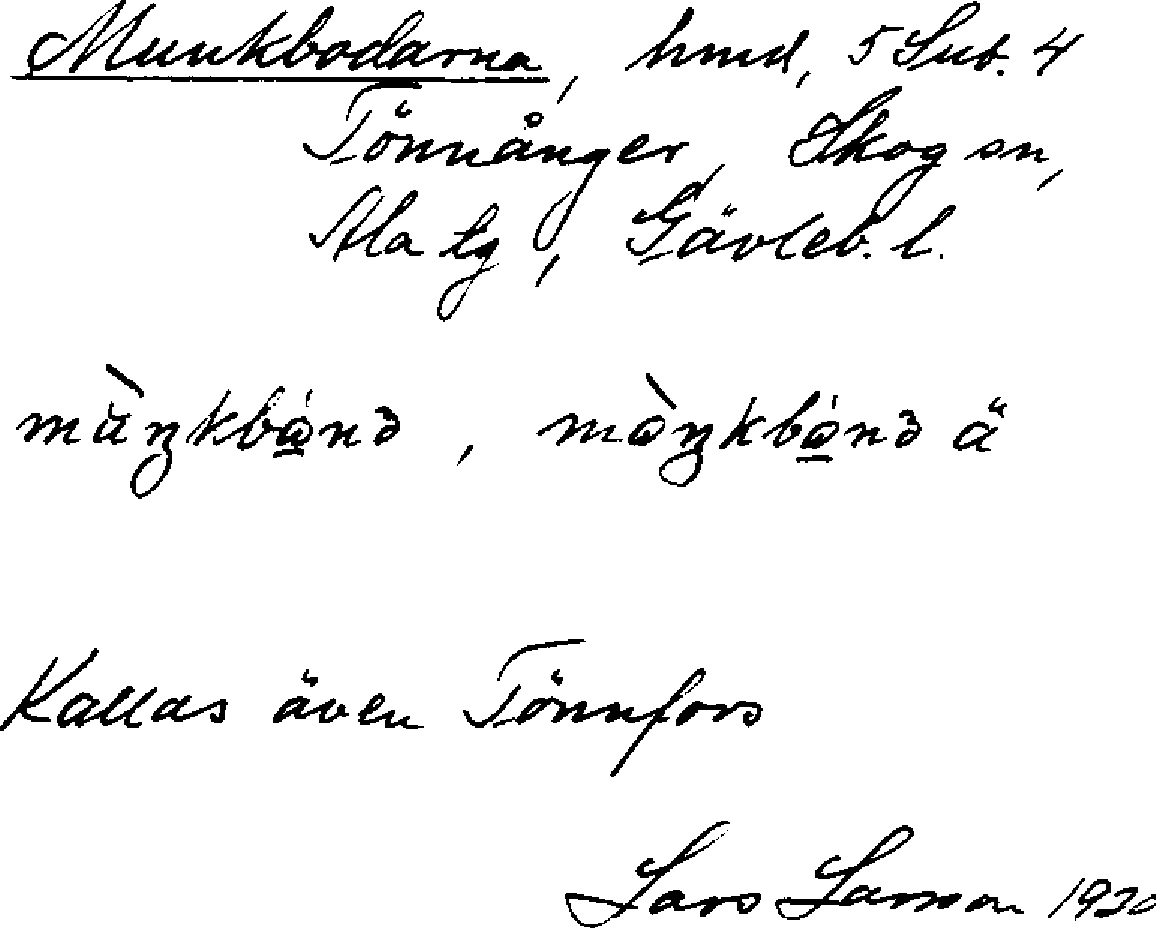 Munkbodarna, hmd, 5 Sub. 4
Tönnånger, Skog sn,
Ala tg, Gävleb. l.
mùŋkbǫ́nə, mòŋkbǫ́nə ä
Kallas även Tönnfors
Lars Larsson 1920